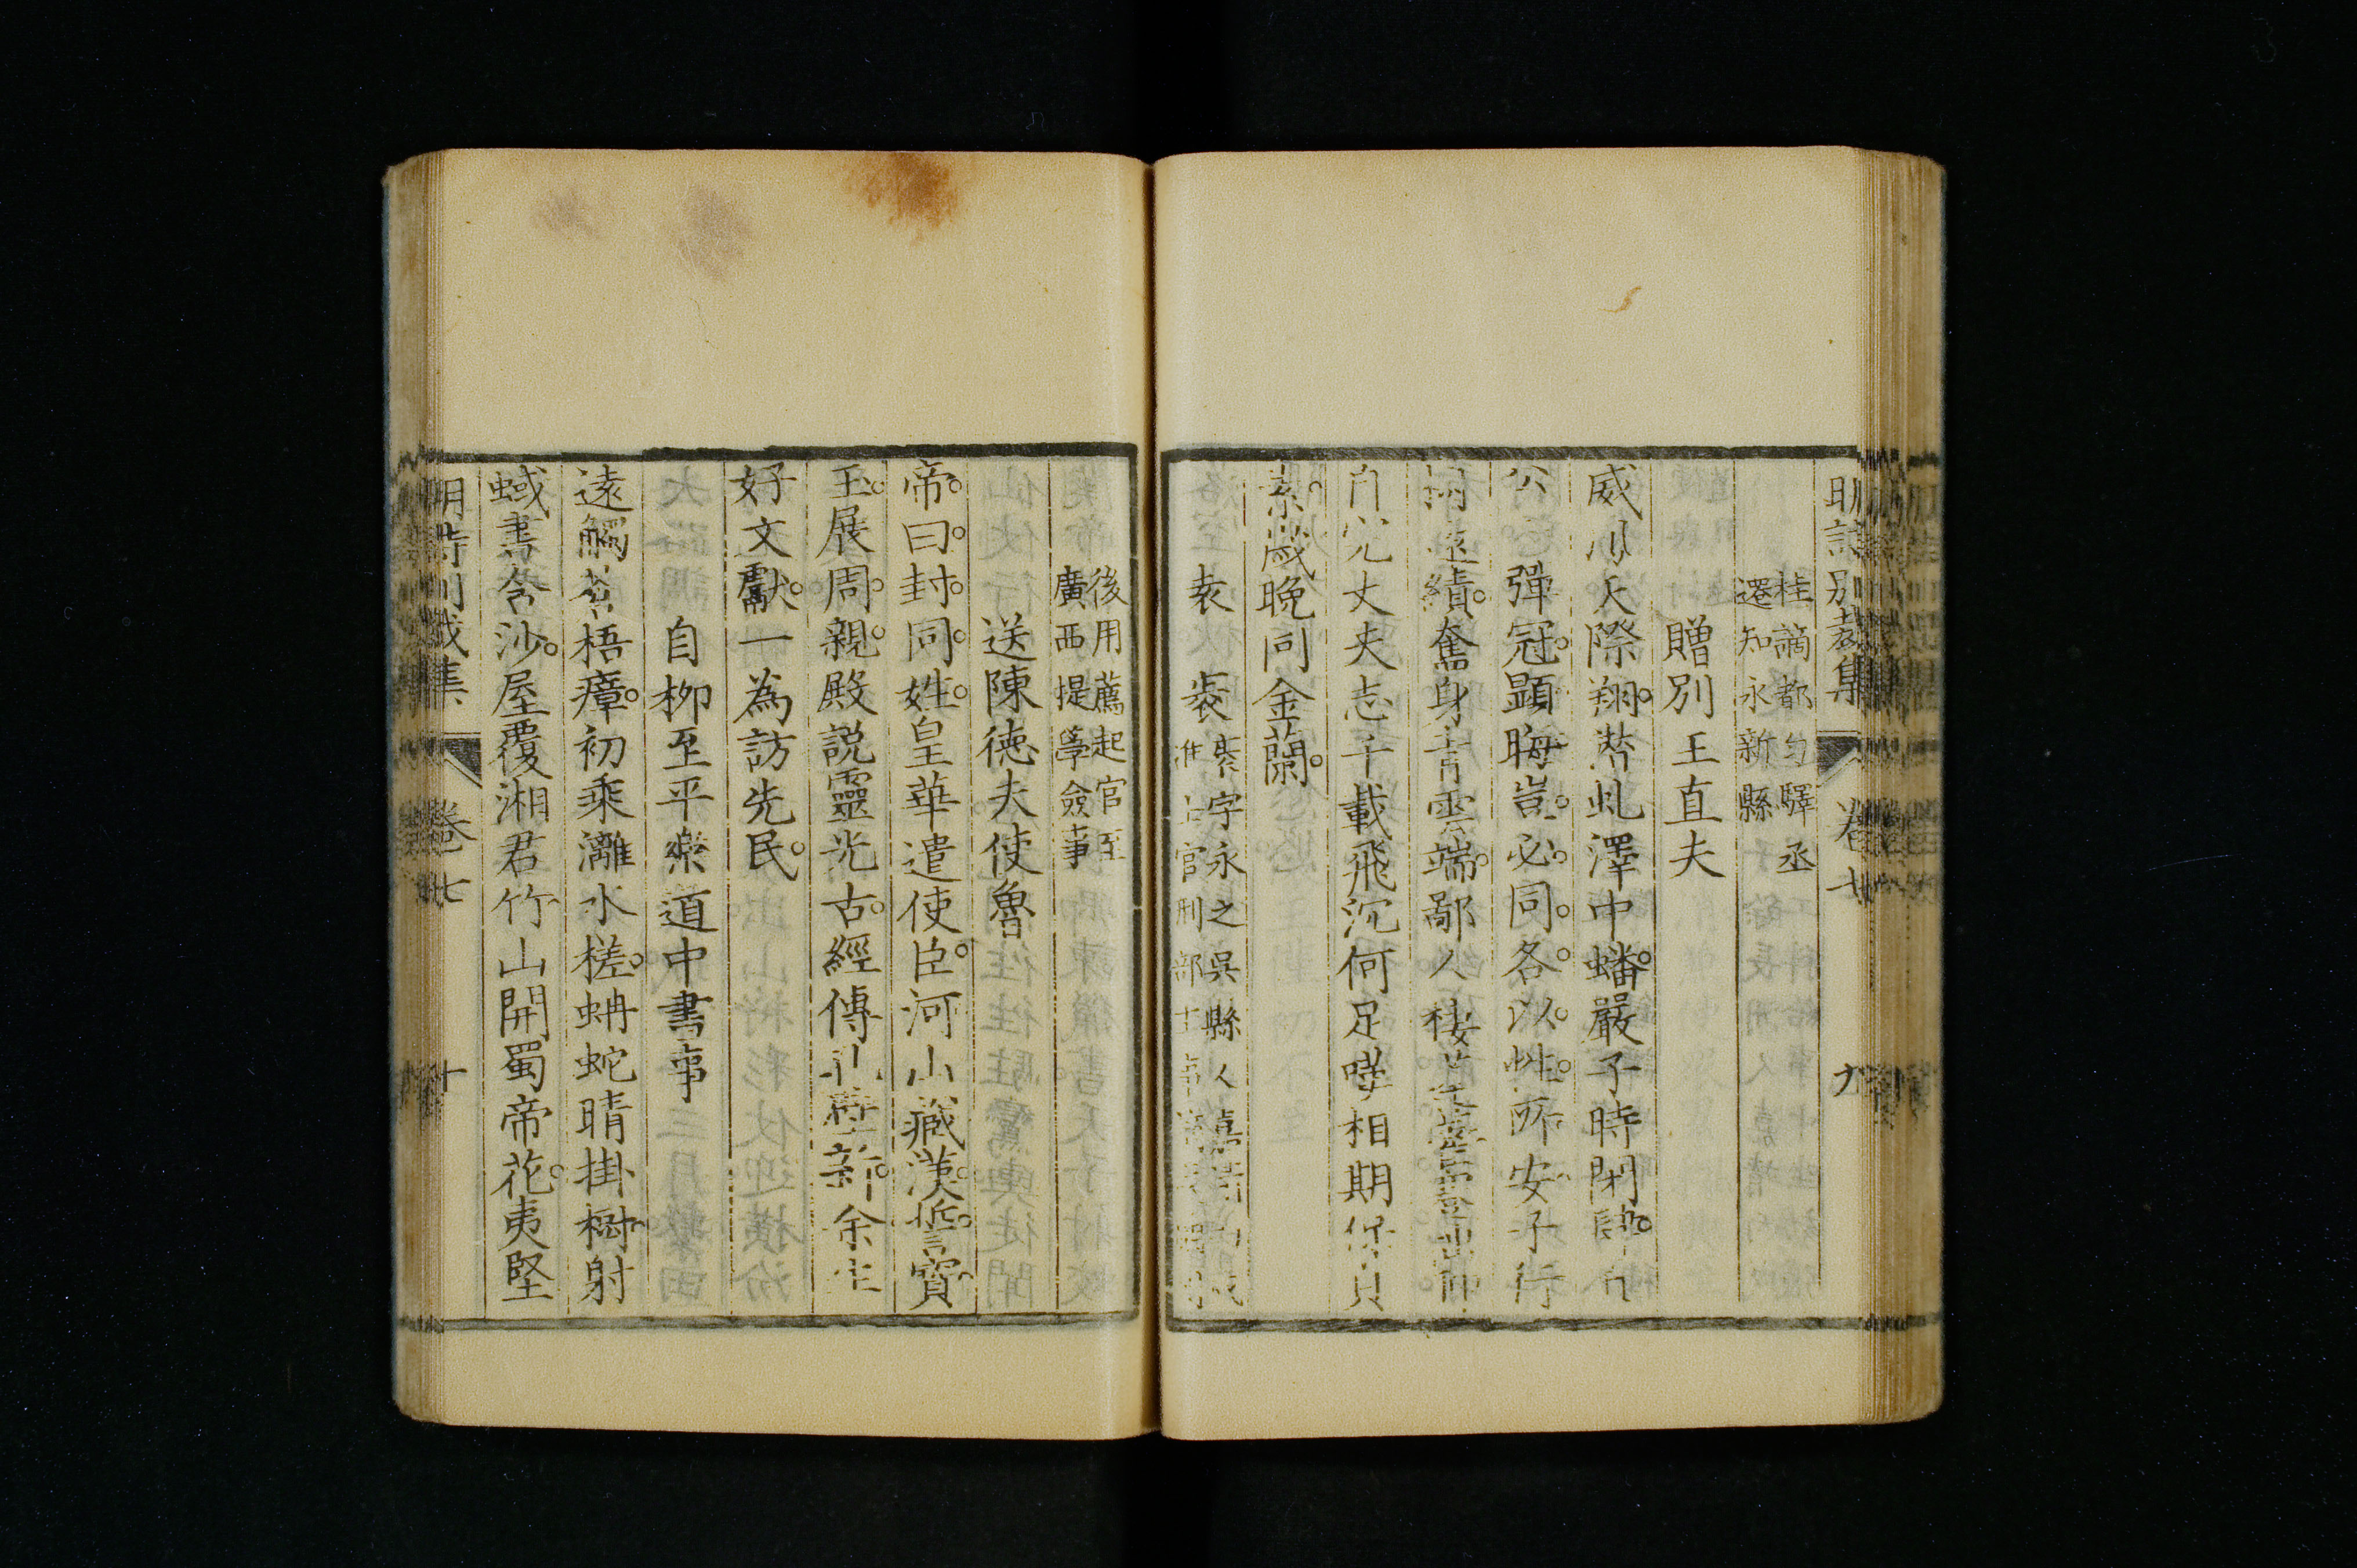 明詩別裁集 卷七 九
桂謫都勻驛丞
還知永新縣
贈別王直夫
威鳳天際翔潛虬澤中蟠嚴子時閉
公彈冠顯晦豈必同各以性所安子行
遠績奮身青雲端鄙人棲
丈夫志千載飛沉何足嘆相期保貞
素歲晚同金蘭
袁袠
袠字永之吳縣人嘉靖
官刑部
後用薦起官至
廣西提學僉事
送陳德夫使魯
帝曰封同姓皇華遣使臣河山藏漢誓寶
玉展周親殿説靈光古經傳孔壁新余生
好文獻一為訪先民
自柳至平樂道中書事
遠觸蒼梧瘴初乘灕水槎蚺蛇晴掛樹射
蜮晝含沙屋覆湘君竹山開蜀帝花夷堅
明詩別裁集 卷七 十